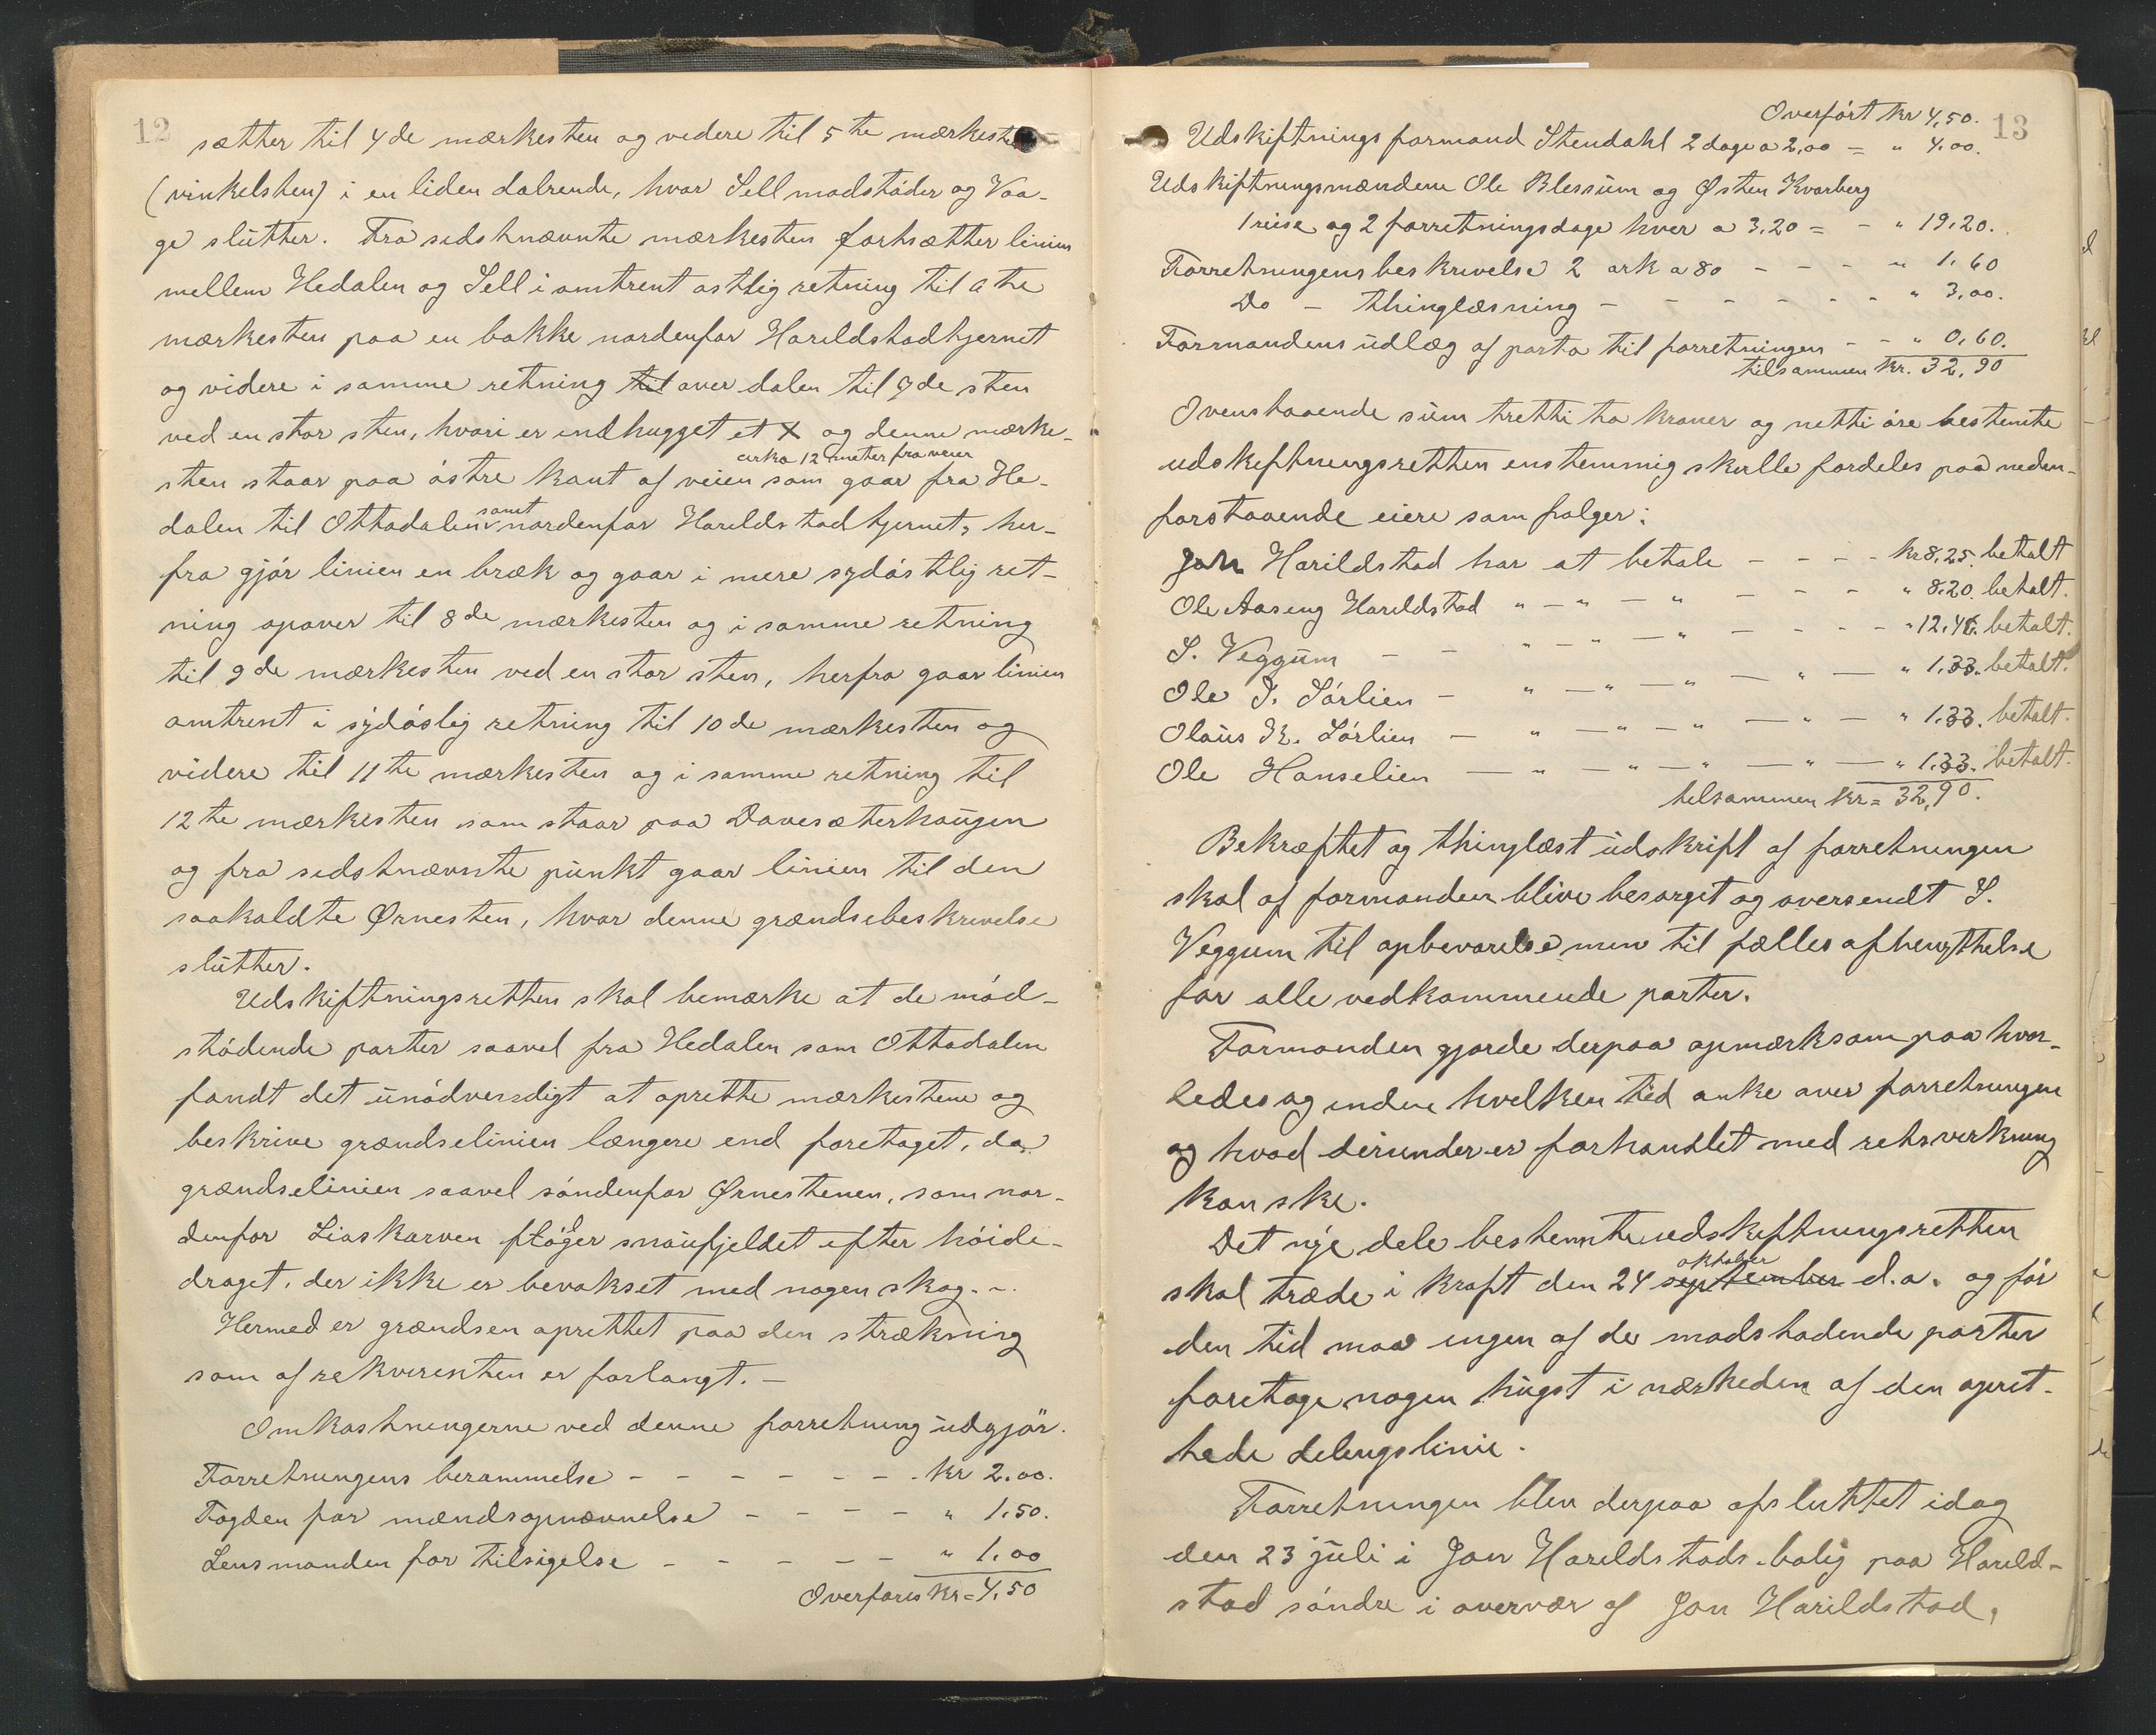 12
sætter til 4de mærkesten og videre til 5te mærkesten
(vinkelsten) i en liden dalrende, hvor Sell modstøder og Vaa-
ge slutter. Fra sidstnævnte mærkesten fortsætter linien
mellem Hedalen og Sell i omtrent østlig retning til 6te
mærkesten paa en bakke nordenfor Harildstadtjernet
og videre i samme retning til over dalen til 7de sten
ved en stor sten, hvori er indhugget et X og denne mærke-
cirka 12 meter fra veien
sten staar paa östre kant af veien som gaar fra He-
dalen til Ottadalen samt nordenfor Harildstadtjernet, her-
fra gjör linien en bræk og gaar i mere sydöstlig ret-
ning opover til 8de mærkesten og i samme retning
til 9de mærkesten ved en stor sten, herfra gaar linien
omtrent i sydöslig retning til 10de mærkesten og
videre til 11te mærkesten og i samme retning til
12te mærkesten som staar paa Davesæterhaugen
og fra sidstnævnte punkt gaar linien til den
saakaldte Ørnesten, hvor denne grændsebeskrivelse
slutter.
Udskiftningsretten skal bemærke at de mod-
stödende parter saavel fra Hedalen som Ottadalen
fandt det unödvendigt at oprette mærkestene og
beskrive grændselinien længere end foretaget, da
grændselinien saavel söndenfor Ørnestenen, som nor-
denfor Liaskarven fölger snaufjeldet efter höide-
draget, der ikke er bevokset med nogen skog. -
Hermed er grændsen oprettet paa den strækning
som af rekvirenten er forlangt. -
Omkostningerne ved denne forretning udgjör.
Forretningens berammelse - - - - - - kr 2.00.
Fogden for mændsopnævnelse - - - - " 1.50.
Lensmanden for tilsigelse - - - - - " 1.00
Overføres kr = 4,50
13
Overfört kr 4,50.
Udskiftningsformand Stendahl 2 dage a 2,00 = " 4.00.
Udskiftningsmændene Ole Blessum og Østen Kvarberg
1 reise og 2 forretningsdage hver a 3.20 = - " 19.20.
Forretningens beskrivelse 2 ark a 80 - - - " 1.60
Do - thinglæsning - - - - - - " 3,00.
Formandens udlæg af porto til forretningen - - " 0,60.
tilsammen kr. 32,90
Ovenstaaende sum tretti to kroner og nitti öre bestemte
udskiftningsretten enstemmig skulle fordeles paa neden-
forstaaende eiere som følger:
Jon Harildstad har at betale - - - kr 8,25. betalt
Ole Aaseng Harildstad " - " - " - - - " 8.20. betalt.
S. Veggum - - " - " - " - - - - " 12.46. betalt.
Ole J. Sörlien - " - " - " - " - " 1.33. betalt.
Olaus K. Sörlien - " - " - " - " - " 1.33. betalt.
Ole Hanselien - " - " - " - " - " 1.33. betalt.
tilsammen kr = 32,90.
Bekræftet og thinglæst udskrift af forretningen
skal af formanden blive besørget og oversendt S.
Veggum til opbevarelse men til fælles afbenyttelse
for alle vedkommende parter.
Formanden gjorde derpaa opmærksom paa hvor-
ledes og inden hvilken tid anke over forretningen
og hvad derunder er forhandlet med retsvirkning
kan ske.
Det nye dele bestemte udskiftningsretten
skal træde i kraft den 24 september oktober d.a. og för
den tid maa ingen af de modstødende parter
foretage nogen hugst i nærheden af den opret-
tede delingslinie.
Forretningen blev derpaa afsluttet idag
den 23 juli i Jon Harildstads bolig paa Harild-
stad söndre i overvær af Jon Harildstad,